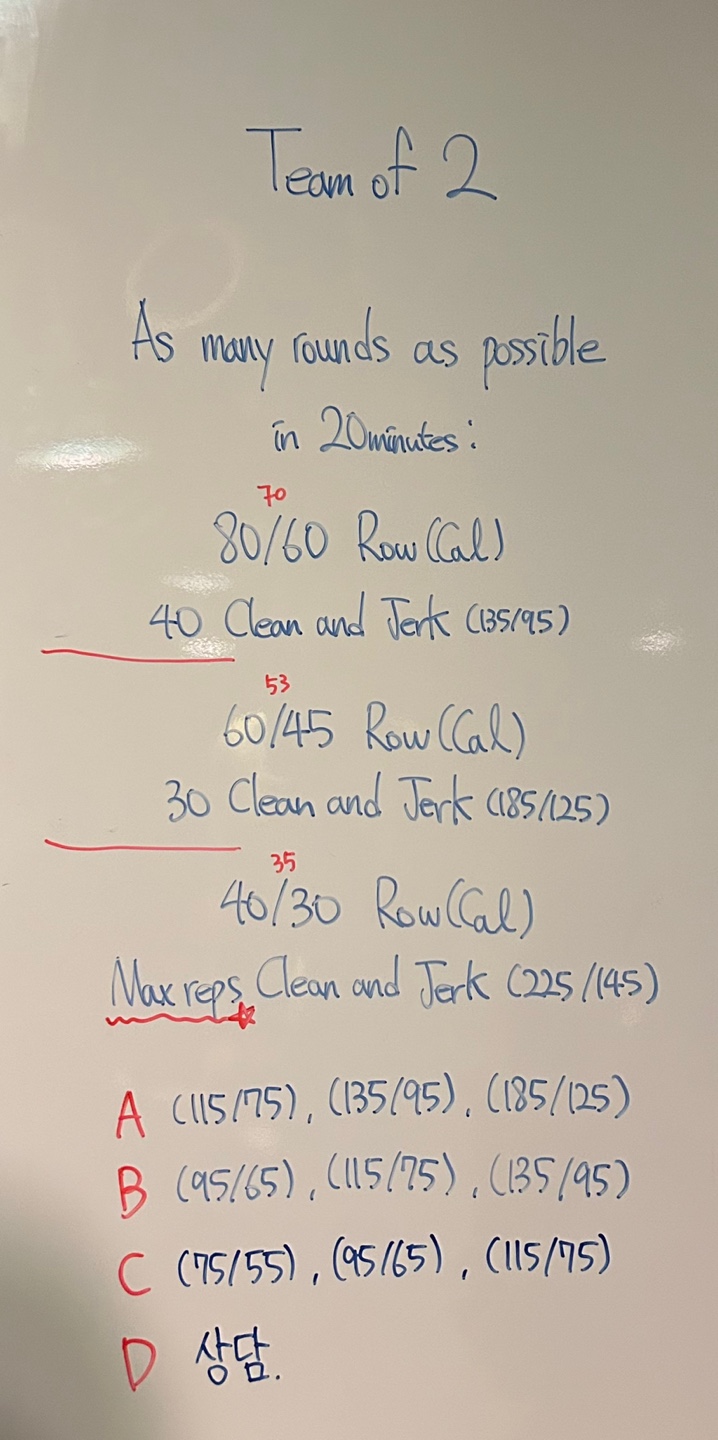 Team of 2
As many rounds as possible
in 20minutes:
70
80/60 Row (Cal)
40 Clean and Jerk (135/95)
53
60/45 Row (Cal)
30 Clean and Jerk (185/125)
35
40/30 Row (Cal)
Max reps Clean and Jerk (225/145)
A (115/75), (135/95), (185/125)
B (95/65), (115/75), (135/95)
C (75/55), (95/65), (115/75)
D 상담.